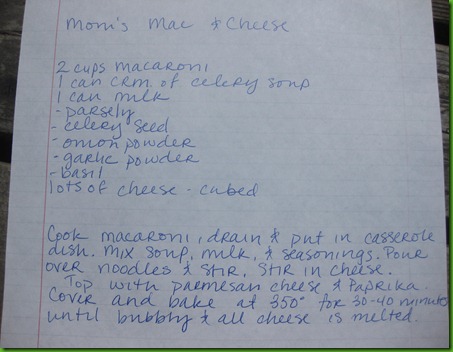 Mom's Mac & Cheese
2 cups macaroni
1 can crm. of celery soup
1 can milk
- parsely
- celery seed
- onion powder
- garlic powder
- basil
lots of cheese - cubed
Cook macaroni, drain & put in casserole
dish. Mix soup, milk, & seasonings. Pour
over noodles & stir. Stir in cheese.
Top with parmesan cheese & paprika.
Cover and bake at 350° for 30-40 minutes
until bubbly & all cheese is melted.